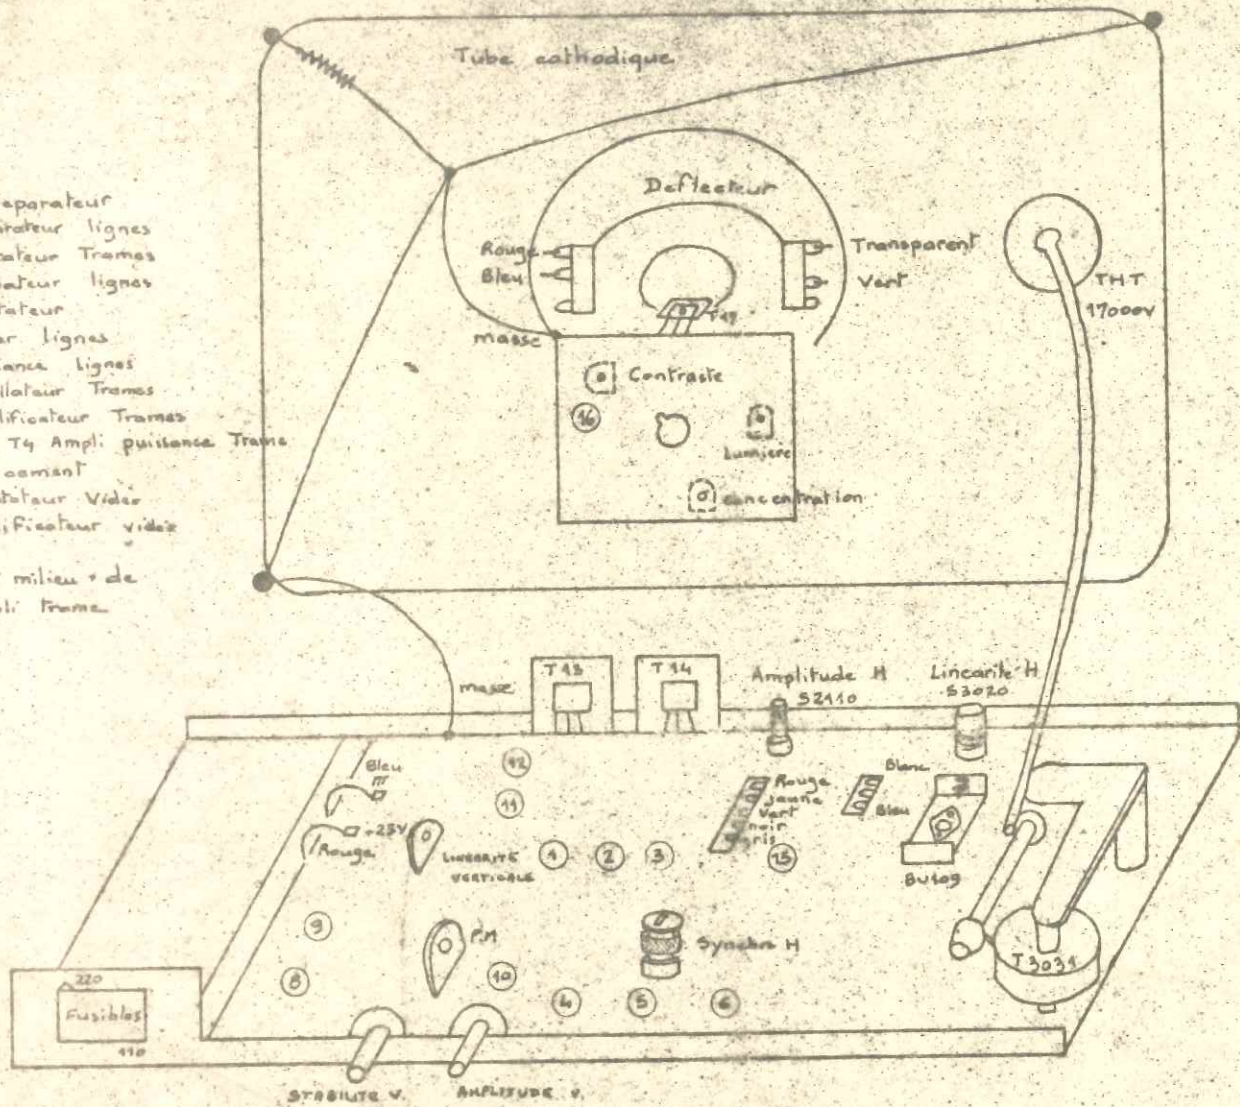 Tube cathodique
Deflecteur
Rouge
Bleu
Transparent
Vert
T17
masse
THT
17000V
Contraste
16
Lumiere
concentration
eparateur
rateur lignes
ateur Trames
ateur lignes
tateur
ur lignes
sance lignes
llateur Trames
lificateur Trames
T4 Ampli puissance Trame
cement
tateur Video
lificateur video
milieu de
pli trame
masse
T13
T14
Amplitude H
S2110
Linearite H
S3020
Bleu
+25V
Rouge
LINEARITÉ
VERTICALE
12
11
1
2
3
Rouge
jaune
Vert
noir
gris
Blanc
Bleu
BU109
9
8
P.M
10
Synchro H
4
5
6
T3031
220
Fusibles
110
STABILITE V.
AMPLITUDE V.